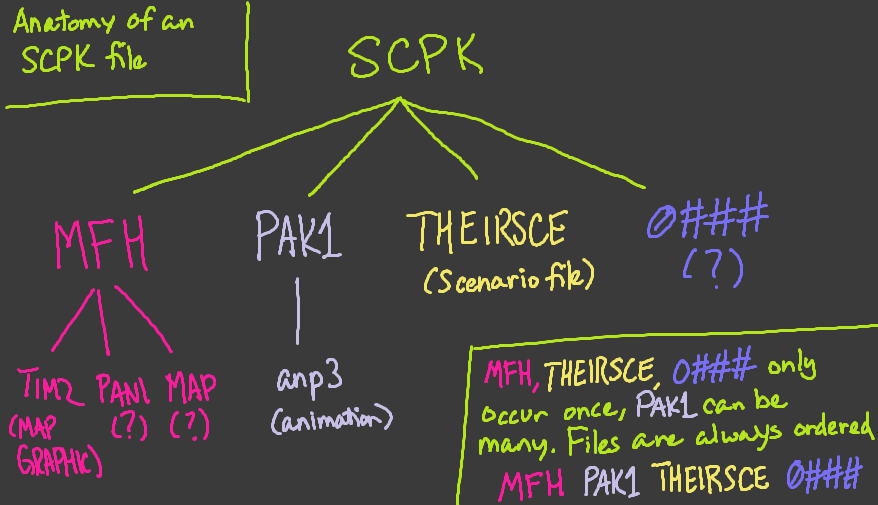 Anatomy of an
SCPK file
SCPK
MFH
PAK1
THEIRSCE
(Scenario file)
0###
(?)
TIM2 PAN1 MAP
(MAP GRAPHIC) (?) (?)
anp3
(animation)
MFH, THEIRSCE, 0### only
occur once, PAK1 can be
many. Files are always ordered
MFH PAK1 THEIRSCE 0###